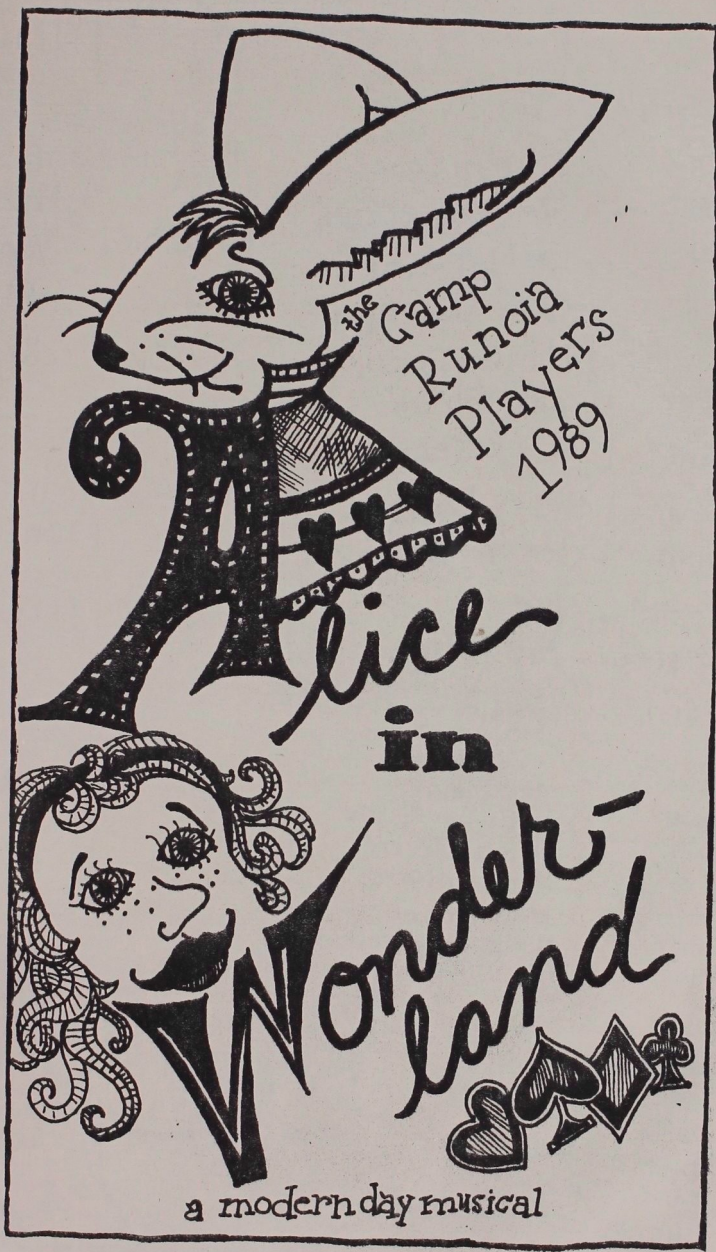 the Camp
Runoia
Players
1989
Alice
in
Wonder-
land
a modern day musical